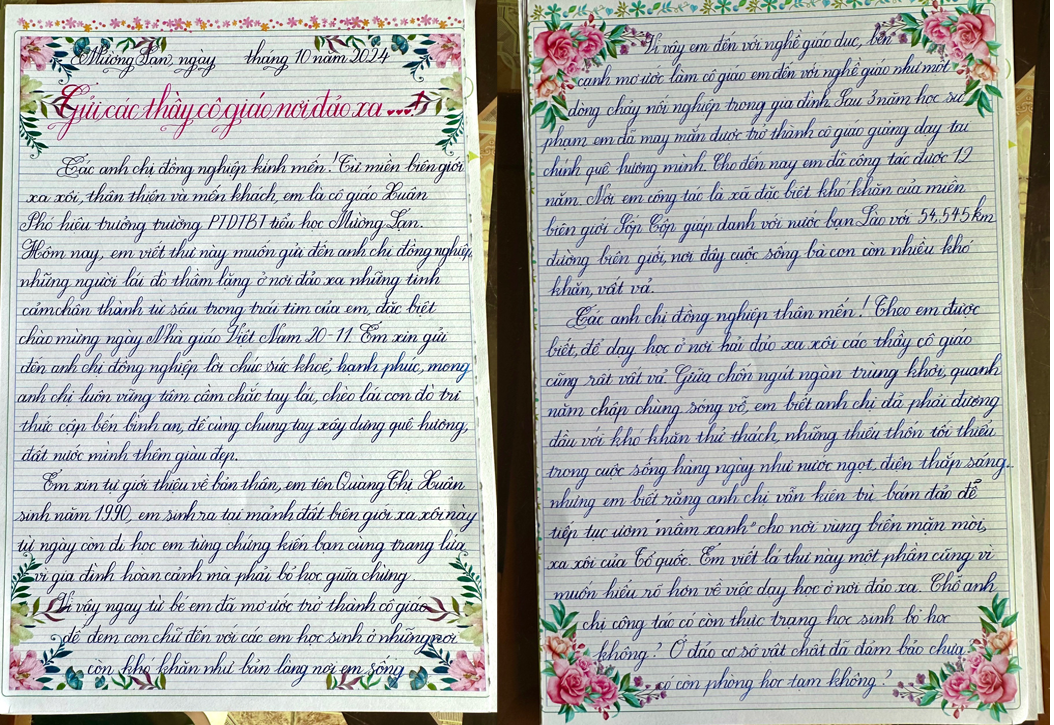 Mường Lạn, ngày tháng 10 năm 2024
Gửi các thầy cô giáo nơi đảo xa ...!
Các anh chị đồng nghiệp kính mến! Từ miền biên giới
xa xôi, thân thiện và mến khách, em là cô giáo Xuân
Phó hiệu trưởng trường PTDTBT tiểu học Mường Lạn.
Hôm nay, em viết thư này muốn gửi đến anh chị đồng nghiệp,
những người lái đò thầm lặng ở nơi đảo xa những tình
cảm chân thành từ sâu trong trái tim của em, đặc biệt
chào mừng ngày Nhà giáo Việt Nam 20-11. Em xin gửi
đến anh chị đồng nghiệp lời chúc sức khoẻ, hạnh phúc, mong
anh chị luôn vững tâm cầm chắc tay lái, chèo lái con đò tri
thức cập bến bình an, để cùng chung tay xây dựng quê hương,
đất nước mình thêm giàu đẹp.
Em xin tự giới thiệu về bản thân, em tên Quàng Thị Xuân
sinh năm 1990, em sinh ra tại mảnh đất biên giới xa xôi này
từ ngày còn đi học em từng chứng kiến bạn cùng trang lứa
vì gia đình hoàn cảnh mà phải bỏ học giữa chừng.
Vì vậy ngay từ bé em đã mơ ước trở thành cô giáo
để đem con chữ đến với các em học sinh ở những nơi
còn khó khăn như bản làng nơi em sống
Vì vậy em đến với nghề giáo dục, bên
cạnh mơ ước làm cô giáo em đến với nghề giáo như một
dòng chảy nối nghiệp trong gia đình. Sau 3 năm học sư
phạm em đã may mắn được trở thành cô giáo giảng dạy tại
chính quê hương mình. Cho đến nay em đã công tác được 12
năm. Nơi em công tác là xã đặc biệt khó khăn của miền
biên giới Sốp Cộp giáp danh với nước bạn Lào với 54,545km
đường biên giới, nơi đây cuộc sống bà con còn nhiều khó
khăn, vất vả.
Các anh chị đồng nghiệp thân mến! Theo em được
biết, để dạy học ở nơi hải đảo xa xôi các thầy cô giáo
cũng rất vất vả. Giữa chốn ngút ngàn trùng khơi, quanh
năm chập chùng sóng vỗ, em biết anh chị đã phải đương
đầu với khó khăn thử thách, những thiếu thốn tối thiểu
trong cuộc sống hàng ngày như nước ngọt, điện thắp sáng...
nhưng em biết rằng anh chị vẫn kiên trì bám đảo để
tiếp tục ươm "mầm xanh" cho nơi vùng biển mặn mòi,
xa xôi của Tổ quốc. Em viết lá thư này một phần cũng vì
muốn hiểu rõ hơn về việc dạy học ở nơi đảo xa. Chỗ anh
chị công tác có còn thực trạng học sinh bỏ học
không? Ở đảo cơ sở vật chất đã đảm bảo chưa
có còn phòng học tạm không?